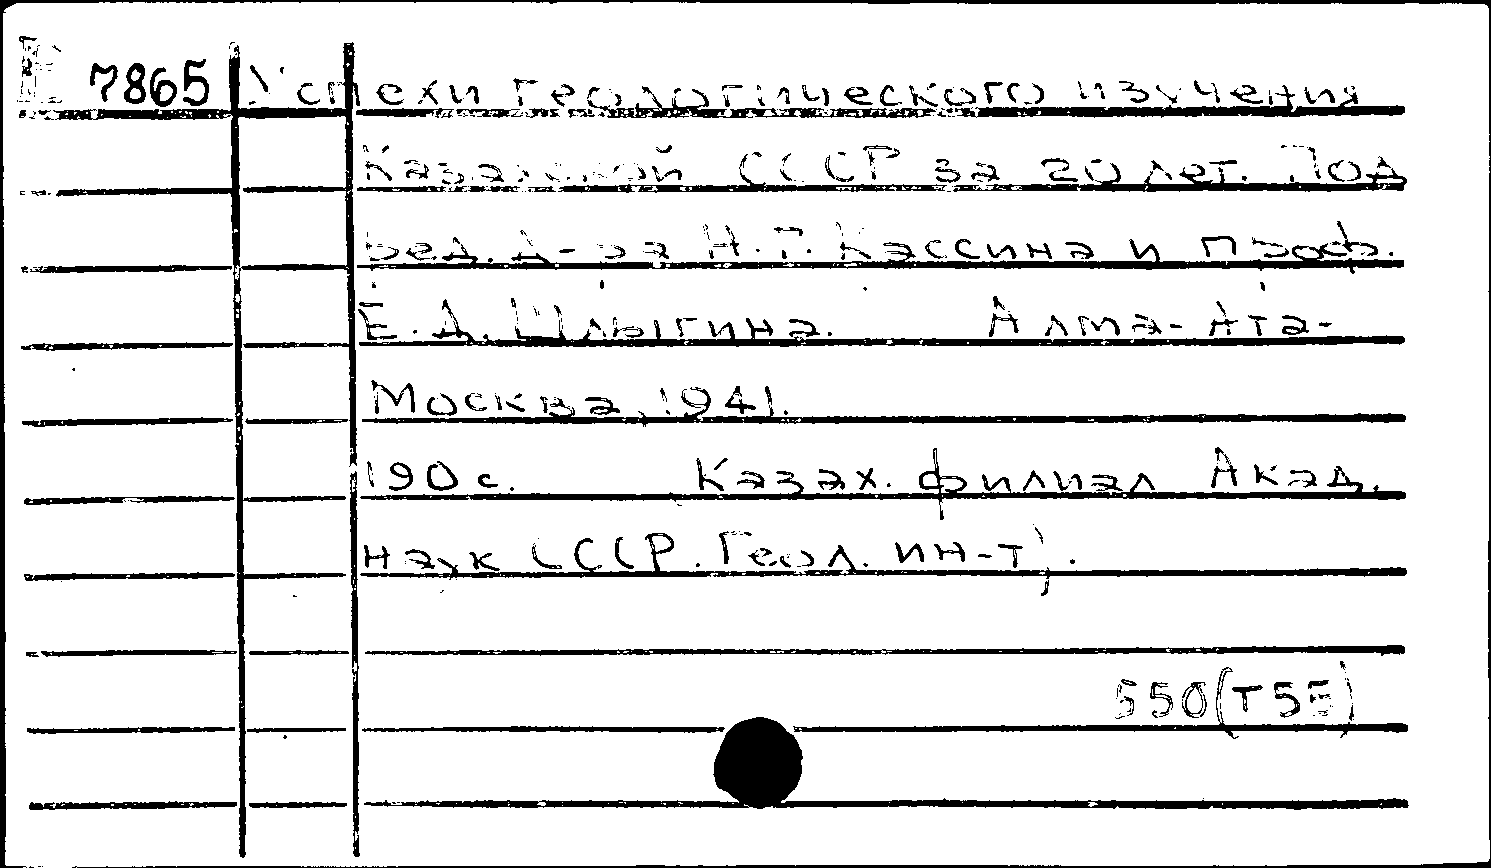 Е 7865 Успехи геологического изучения
Казахской ССР за 20 лет. Под
ред. д-ра Н.Г. Кассина и проф.
Е.Д. Шлыгина. Алма-Ата-
Москва, 1941.
190 с. Казах. филиал Акад.
наук СССР. Геол. ин-т).
550(Т5Е)